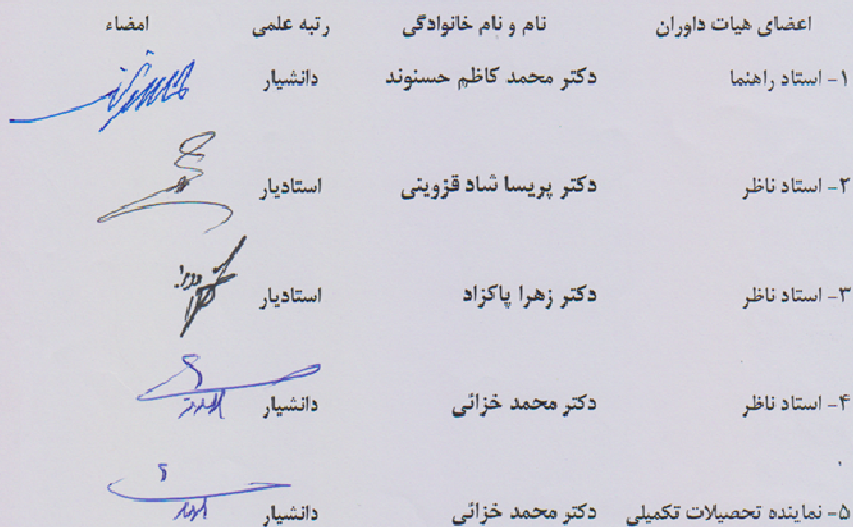 اعضای هیات داوران نام و نام خانوادگی رتبه علمی امضاء
۱- استاد راهنما دکتر محمد کاظم حسنوند دانشیار
۲- استاد ناظر دکتر پریسا شاد قزوینی استادیار
۳- استاد ناظر دکتر زهرا پاکزاد استادیار
۴- استاد ناظر دکتر محمد خزائی دانشیار
۵- نماینده تحصیلات تکمیلی دکتر محمد خزائی دانشیار